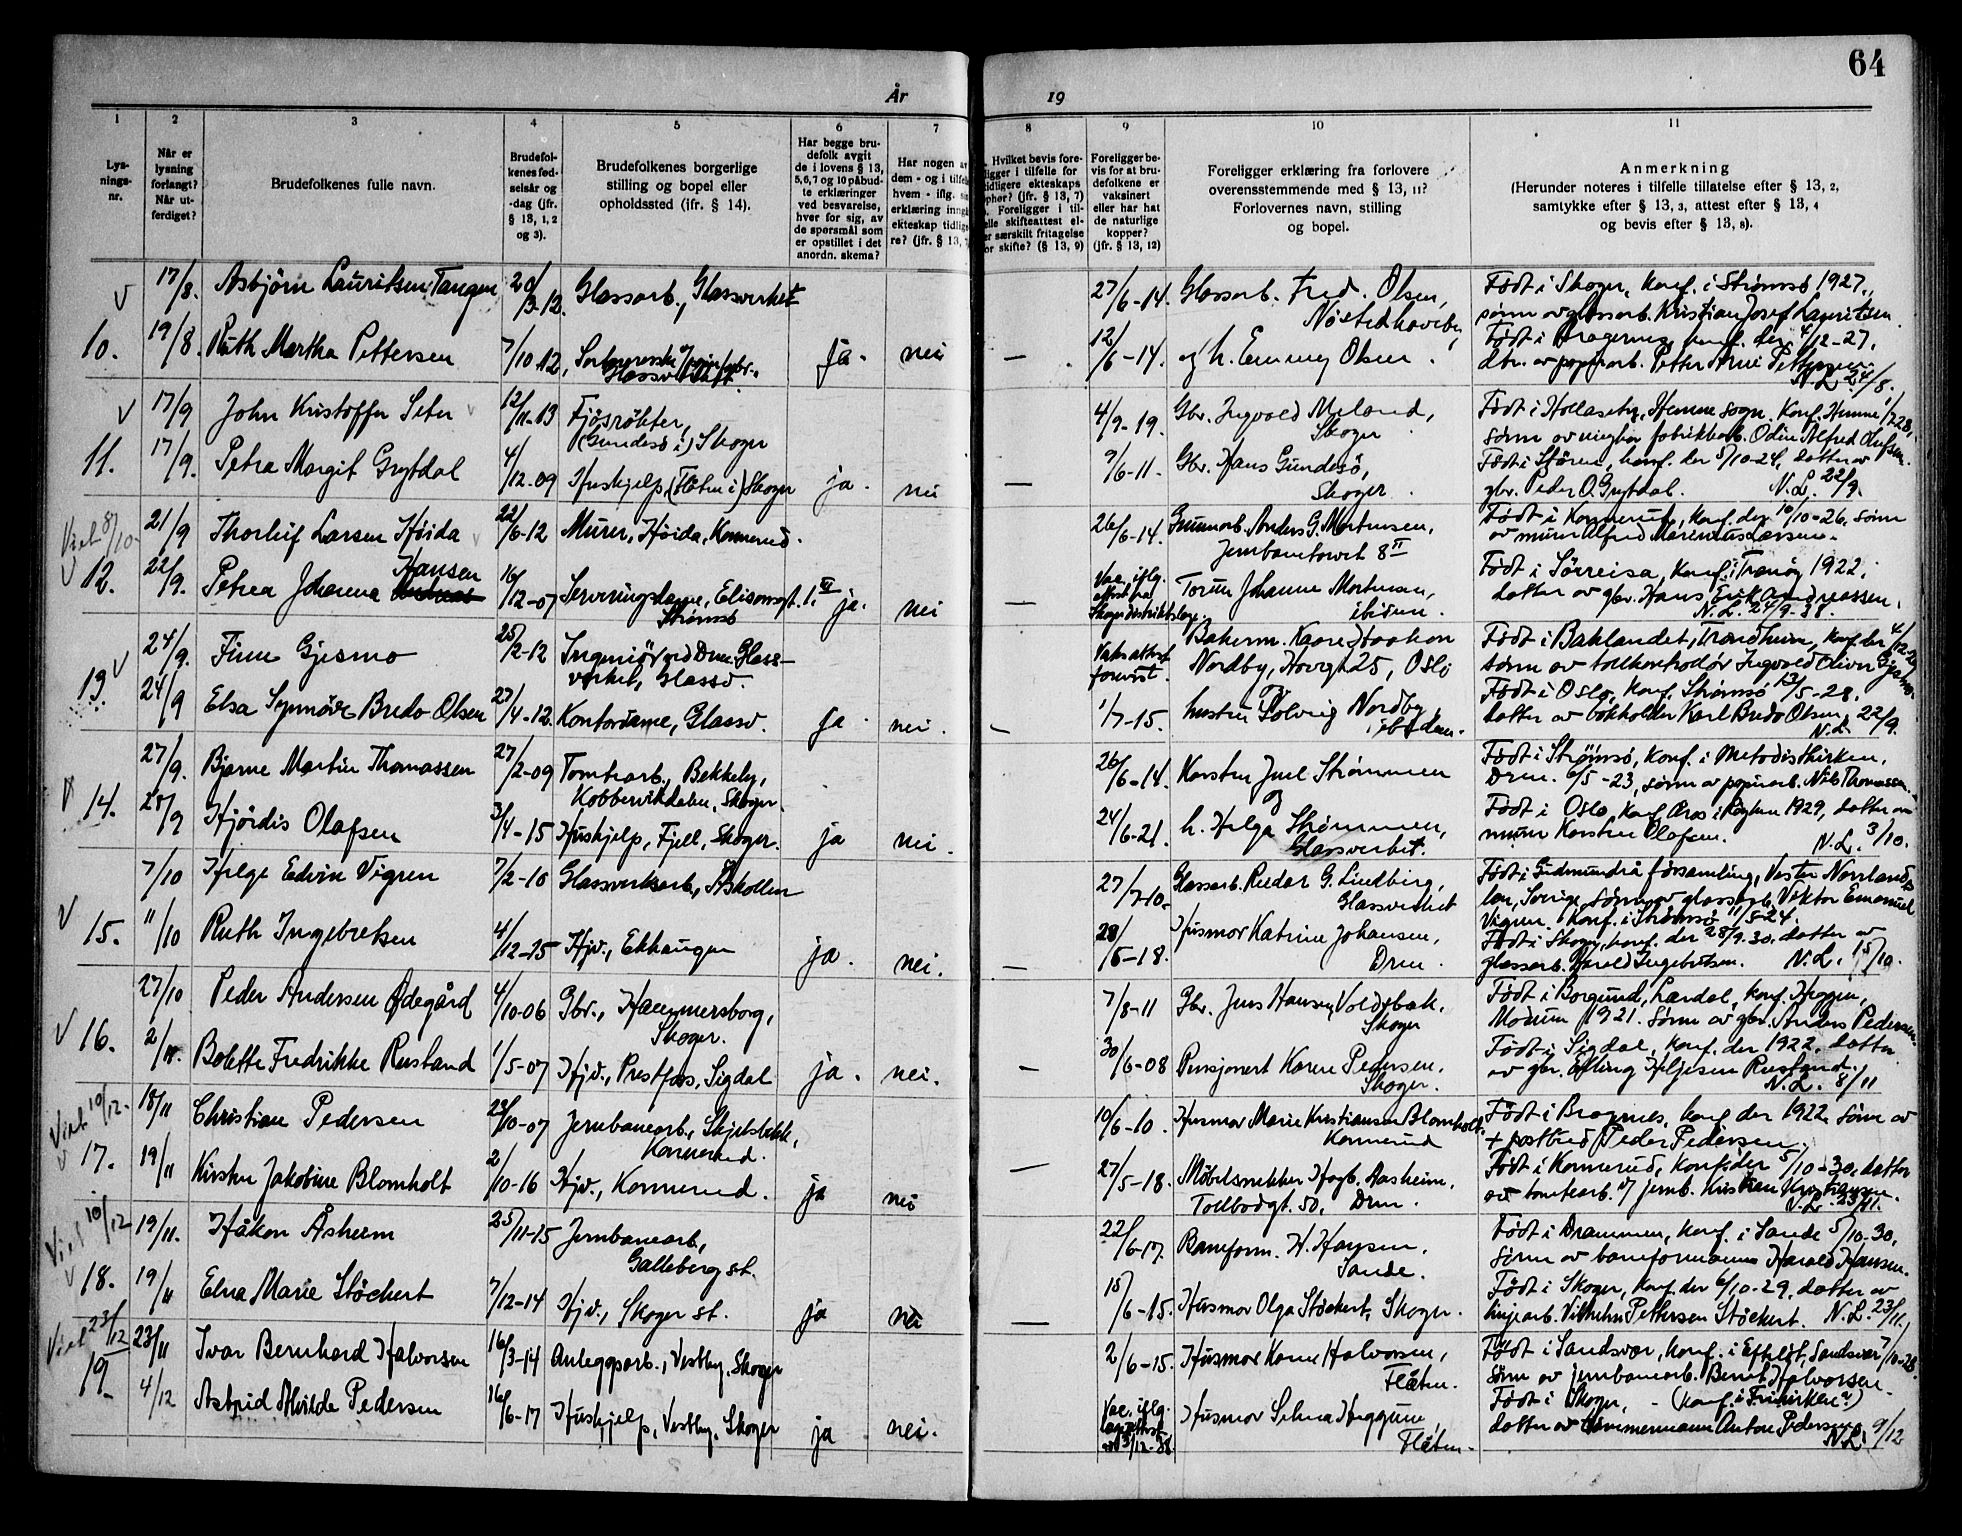 64
År 19
1 2 3 4 5 6 7 8 9 10 11
Lysningsnr.
Når er lysning forlangt? Når utferdiget?
Brudefolkenes fulle navn.
Brudefolkenes fødselsår og -dag (jfr. § 13, 1, 2 og 3).
Brudefolkenes borgerlige stilling og bopel eller opholdssted (ifr. § 14).
Har begge brudefolk avgit de i lovens § 13, 5, 6, 7 og 10 påbudte erklæringer ved besvarelse, hver for sig, av de spørsmål som er opstillet i det anordn. skema?
Har nogen av dem - og i tilfelle hvem - iflg.
erklæring inngå ekteskap tidlige re? (jfr. § 13, 7
Hvilket bevis foreligger i tilfelle for tidligere ekteskaps opher? (jfr. § 13, 7) Foreligger i tilfelle skifteattest eller særskilt fritagelse for skifte? (§ 13, 9)
Foreligger bevis for at brudefolkene er vaksinert eller har hat de naturlige kopper? (jfr. § 13, 12)
Foreligger erklæring fra forlovere overensstemmende med § 13, 11? Forlovernes navn, stilling og bopel.
Anmerkning
(Herunder noteres i tilfelle tillatelse efter § 13, 2, samtykke efter § 13, 3, attest efter § 13, 4 og bevis efter § 13, 8).
17/8. Asbjörn Lauritsen Tangen 20/3-12. Glassarb., Glassverket 27/6-14. Glassarb. Fred. Olsen, Født i Skoger, konf. i Strømsø 1927.,
sønn av glassarb. Kristian Josef Lauritsen
10. 19/8. Ruth Martha Pettersen 7/10-12, ja. nei — 12/6-14. og h. Emmy Olsen. Født i Bragernes, konf. der 4/12-27.
dtr. av papirarb. Petter Arne Pettersen.
N.L. 24/8.
17/9 John Kristoffer Seter 12/11-13 Fjøsrøkter, 4/9-19. Gbr. Ingvald Meland,
(Gundesö i) Skoger Skoger
sønn av Odin Alfred Olufsen.
11. 17/9. Petra Margit Grytdal 4/12-09 Hushjelp (Flåten i) Skoger ja. nei — 9/6-11. Gbr. Hans Gundesö, Født i Stören, konf. der 5/10-24, datter av
Skoger. gbr. Peder O. Grytdal. N.L. 22/9.
Viet 8/10 21/9 Thorleif Larsen Höida 22/6-12 Murer, Höida, Konnerud. 26/6-14. Anders G. Mortensen, Født i Konnerud, konf. der 10/10-26, sønn
Jernbanetorvet 8 II av murer Alfred Marenius Larsen.
12. 22/9. Petrea Johanna Hansen 16/12-07 Serveringsdame, Elisonsgt. 1. VI ja. nei — Vac. iflg. attest fra Torun Johanne Mortensen, Født i Sörreisa, konf. i Tranöy 1922,
Strømsö ibidem. datter av gbr. Hans Erik Andreassen.
N.L. 24/9-38.
24/9. Finn Gjesmo 25/2-12 Ingeniör ved Drm. Glass- Vaks.attest forevist. Bakerm. Kaare Haakon Født i Baklandet, Trondheim, konf. der
verket, Glassv. Nordby, Hovsgt. 25, Oslo sönn av tollkontrollör Ingvald Oliver Gjesmo
13. 24/9 Elsa Synnöve Bredo Olsen 27/4-12. Kontordame, Glassv. ja. nei. — 1/7-15. hustru Solveig Nordby, Født i Oslo, konf. Strømsö 13/5-28.
ibidem. datter av bokholder Karl Bredo Olsen. 22/9.
N.L.
27/9. Bjarne Martin Thomassen 27/2-09 Tomtearb., Bekkeby, 26/6-14. Karsten Juel Strømmen Født i Strömsö, konf. i Metodistkirken,
Kobbervikdalen, Skoger. og Drm. 6/5-23, sønn av papirarb. Nils Thomassen.
14. 28/9 Hjördis Olafsen 3/4-15 Hushjelp, Fjell, Skoger. ja nei. 24/6-21. h. Helga Strømmen, Født i Oslo, konf. Aros i Röyken 1929, datter av
Glassverket. murer Karsten Olafsen. N.L. 3/10.
7/10 Helge Edvin Vigren 7/2-10 Glassverksarb., Åskollen 27/7-10. Glassarb. Reidar G. Lindberg, Født i Gudmundrå församling, Vester Norrlands
Glassverket len, Sverige, sønn av glassarb. Viktor Emanuel
Vigren. Konf. i Strømsö 11/5-24.
15. 11/10 Ruth Ingebretsen 4/12-15 Hjv., Ekhaugen ja. nei. — 28/5-18. Husmor Katrine Johansen, Født i Skoger, konf. der 28/9.30, datter av
Drm. glassarb. Harald Ingebretsen. N.L. 15/10.
27/10 Peder Andersen Ødegård 4/10-06 Gbr., Hammersborg, 7/8-11 Gbr. Jens Hansen Voldsbak, Født i Borgund, Lærdal, konf. Heggen,
Skoger. Skoger Modum 1921. Sønn av gbr. Anders Pedersen.
16. 2/11. Bolette Fredrikke Rustand 1/5-07 Hjv., Prestfoss, Sigdal ja. nei. — 30/6-08 Pensjonert Karen Pedersen, Født i Sigdal, konf. der 1922, datter
Skoger. av gbr. Erling Helgesen Rustand.
N.L. 8/11
Viet 10/12. 18/11 Christian Pedersen 23/10-07 Jernbanearb., Skjelsbekk, 10/6-10. Husmor Marie Kristiansen Blomholt. Født i Bragernes, konf. der 1922, sønn av
Konnerud. Konnerud + postbud Peder Pedersen.
17. 19/11 Kirsten Jakobine Blomholt 2/10-16 Hjv., Konnerud. ja nei — 27/5-18. Møbelsnekker Hagb. Aasheim, Født i Konnerud, konf. der 5/10-30, datter
Tollbodgt. 50, Drm. av tomtearb. v/ jernb. Kristian Kristiansen.
N.L. 23/11.
Viet 10/12 19/11. Håkon Åsheim 25/11-15 Jernbanearb., 22/6-17. Baneform. H. Hansen, Født i Drammen, konf. i Sande 5/10-30,
Galleberg st. Sande. sønn av baneformann Harald Hansen.
18. 19/11 Elna Marie Stöckert 7/12-14 Hjv., Skoger st. ja nei — 15/6-15. Husmor Olga Stöckert, Skoger. Født i Skoger, konf. der 6/10-29, datter av
linjearb. Vilhelm Pettersen Stöckert. N.L. 23/11.
Viet 23/12 23/11 Ivar Bernhard Halvorsen 16/3-14 Anleggsarb., Vestby, Skoger 2/6-15. Husmor Karen Halvorsen, Født i Sandsvær, konf. i Efteløt, Sandsvær 7/10-28
Flåten. Sønn av jernbanearb. Bernt Halvorsen.
19. 4/12 Astrid Alvilde Pedersen 16/6-17 Hushjelp, Vestby, Skoger ja nei. Vac. iflg. legeattest av 3/12-38. Husmor Selma Heggum, Født i Skoger, - (konf. i Frikirken?)
Flåten. datter av tømmermann Anton Pedersen. N.L. 9/12